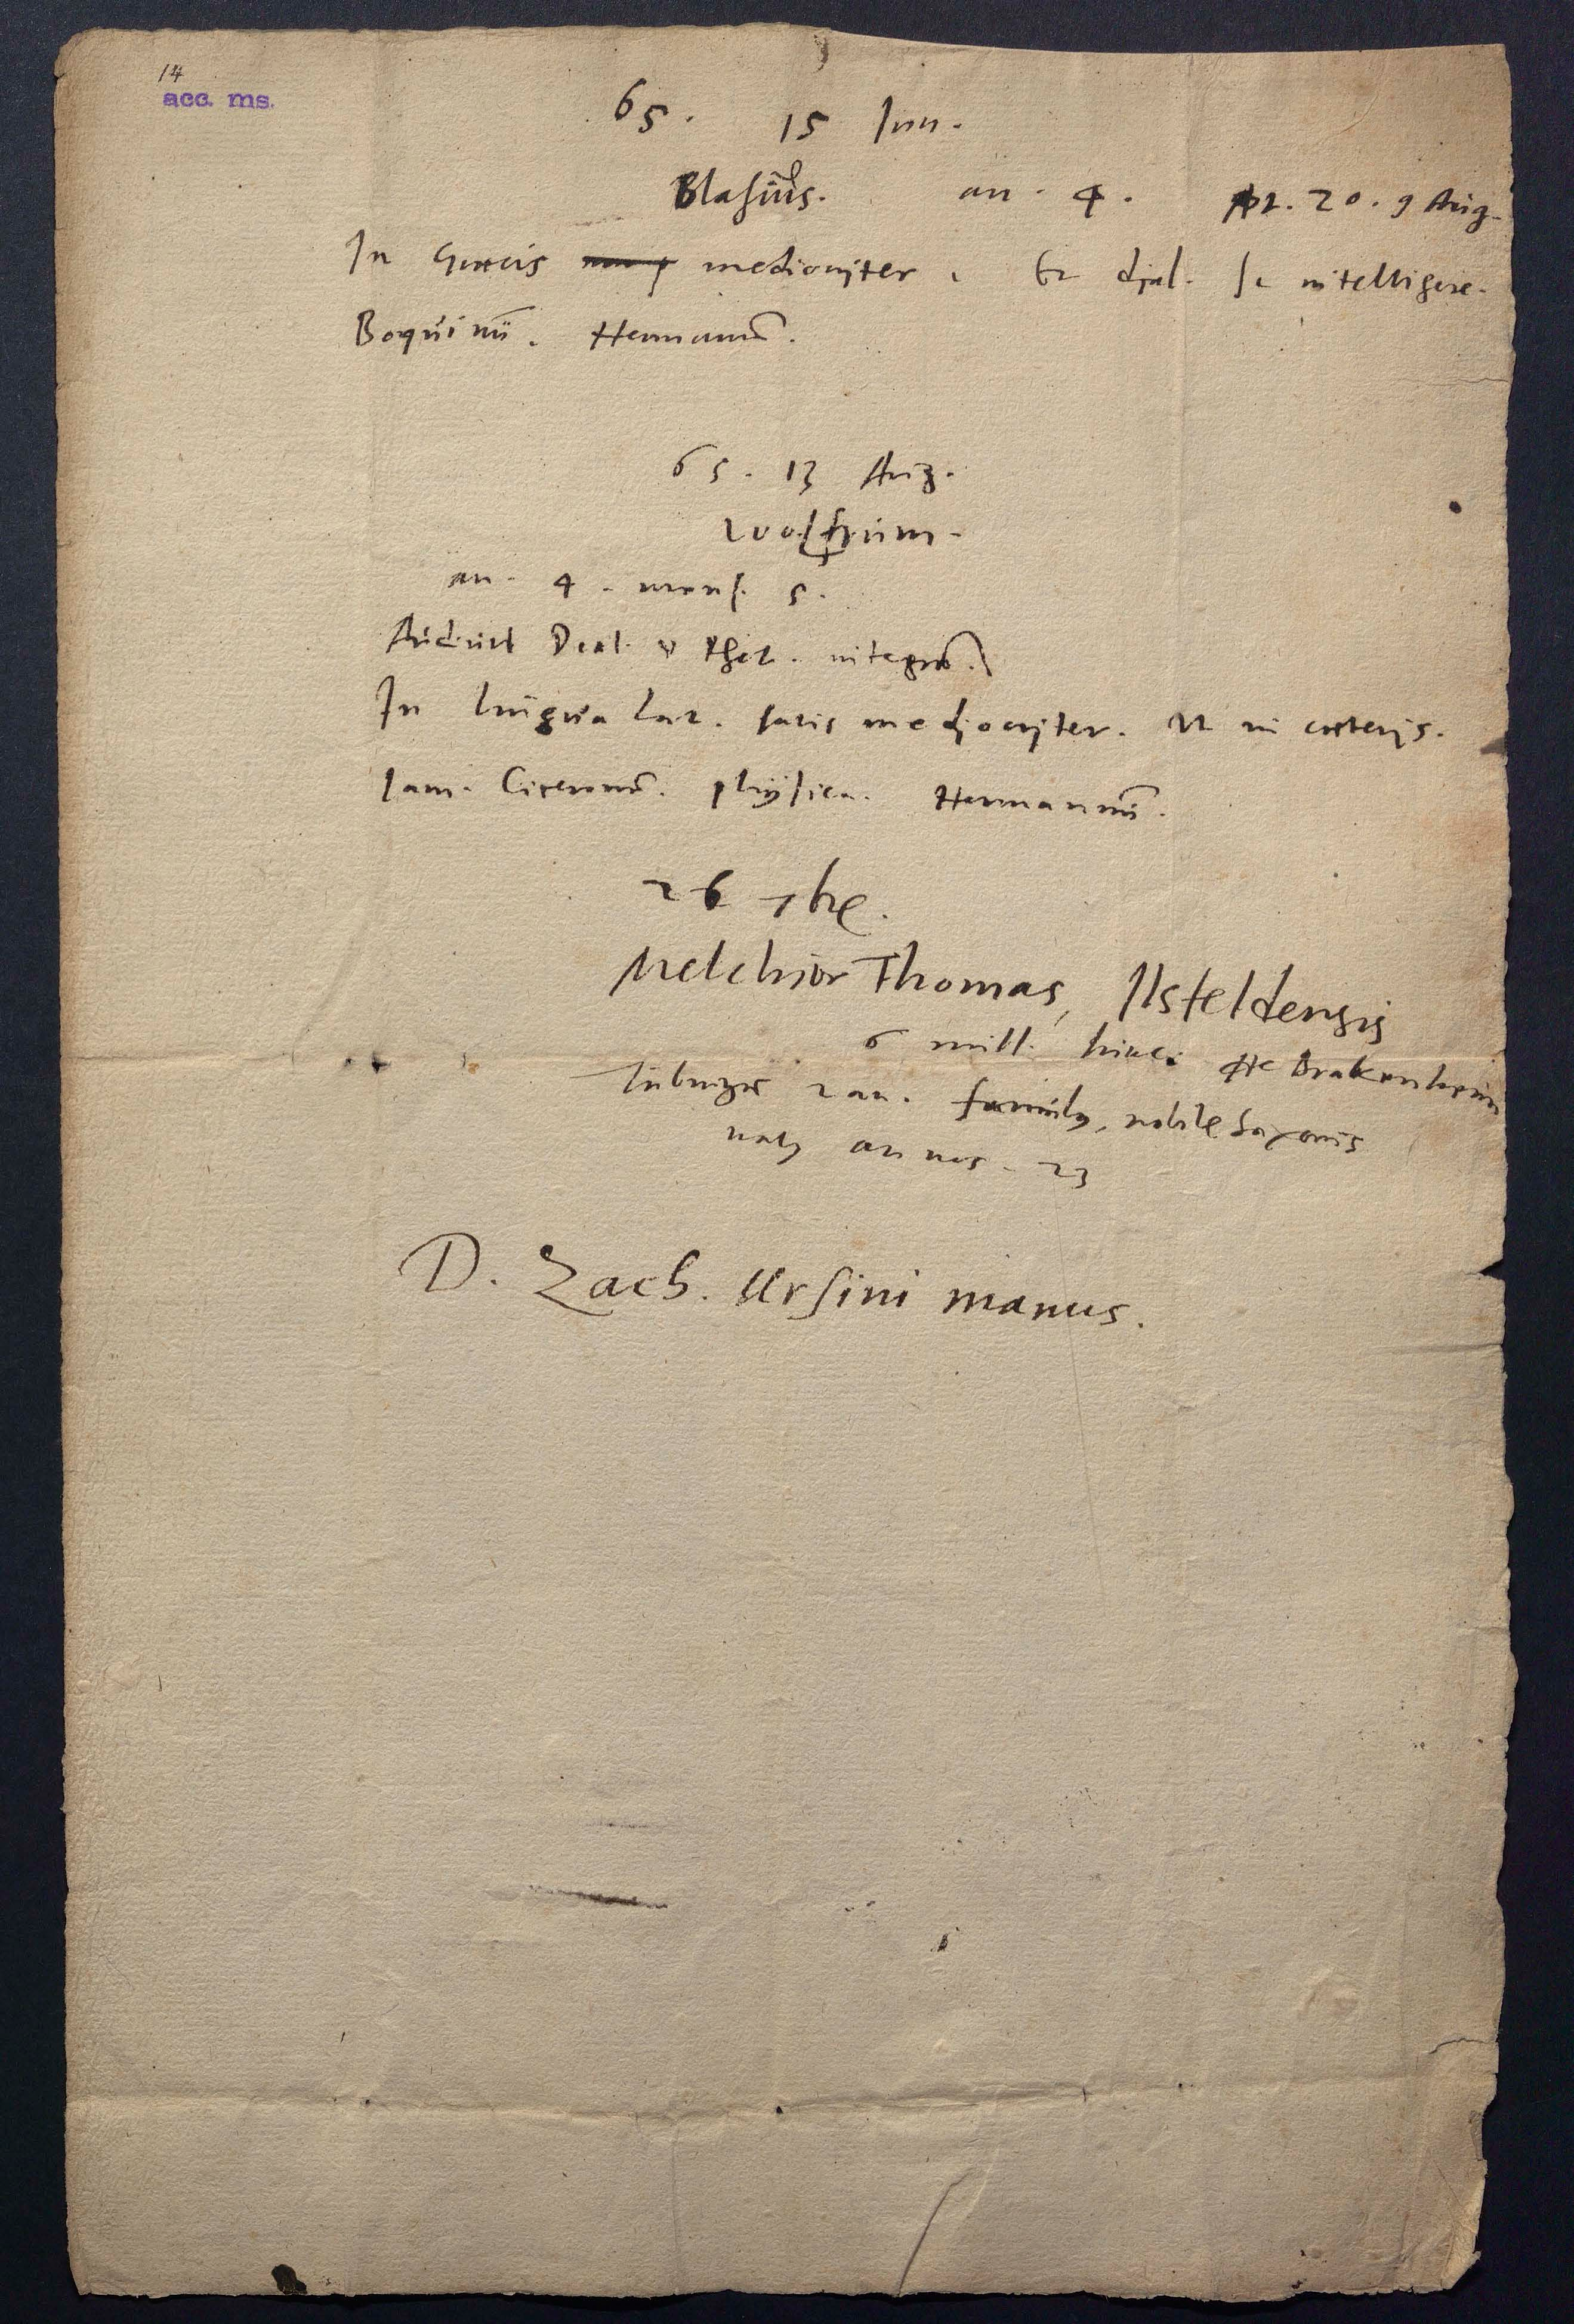 14
acc. ms.
65. 15 Jun.
Blasius. an. 4. 20. 9 Aug.
In Graecis mediocriter. Et djal. se intelligere.
Boquinū. Hermannū.
65. 13 Aug.
Wolfrum.
an. 4. mens. 5.
Audiuit Dial. & Rhet. integrā.
In lingua Lat. satis mediocriter. Vt in caeterjs.
Iam. Ciceronē. physica. Hermannū.
26 7br̄.
Melchior Thomas, Ilsfeldensis
6 mill. hinc. Brakenheim
Tubingae 2 an. famulꝰ, nobile Saxonis
natꝰ annos. 23
D. Zach. Ursini manus.